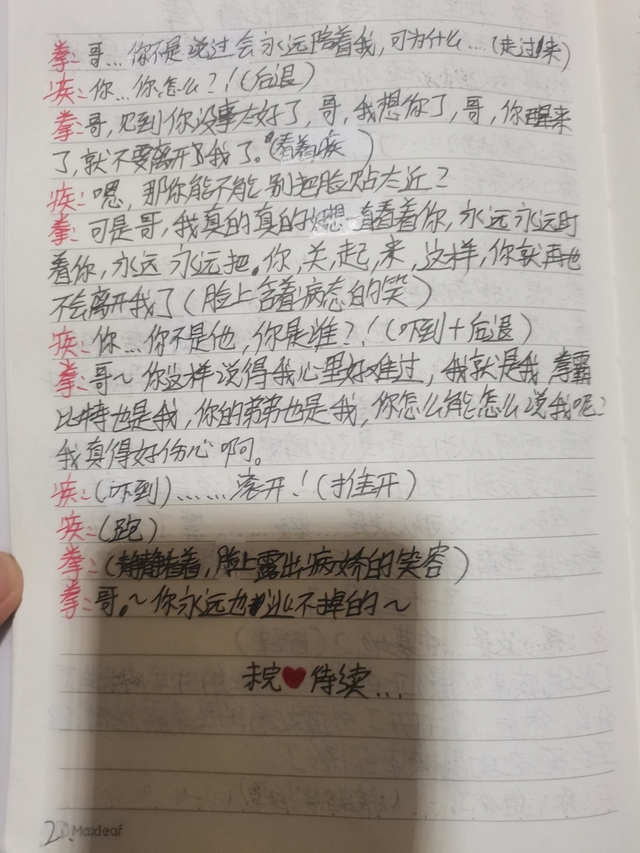 拳:哥…你不是说过会永远陪着我,可为什么…(走过来)
疾:你…你怎么?!(后退)
拳:哥,见到你没事太好了,哥,我想你了,哥,你醒来
了,就不要离开我了。(看着疾)
疾:嗯,那你能不能别把脸贴太近?
拳:可是哥,我真的真的好想看着你,永远永远盯
着你,永远永远把。你,关,起,来,这样,你就再也
不会离开我了(脸上含着病态的笑)
疾:你…你不是他,你是谁?!(吓到+后退)
拳:哥~你这样说得我心里好难过,我就是我拳霸
比特也是我,你的弟弟也是我,你怎么能怎么说我呢?
我真得好伤心啊。
疾:(吓到)……滚开!(推开)
疾:(跑)
拳:(静静看着,脸上露出病娇的笑容)
拳:哥。~你永远也逃不掉的~
未完❤待续…
2.
Maxleaf